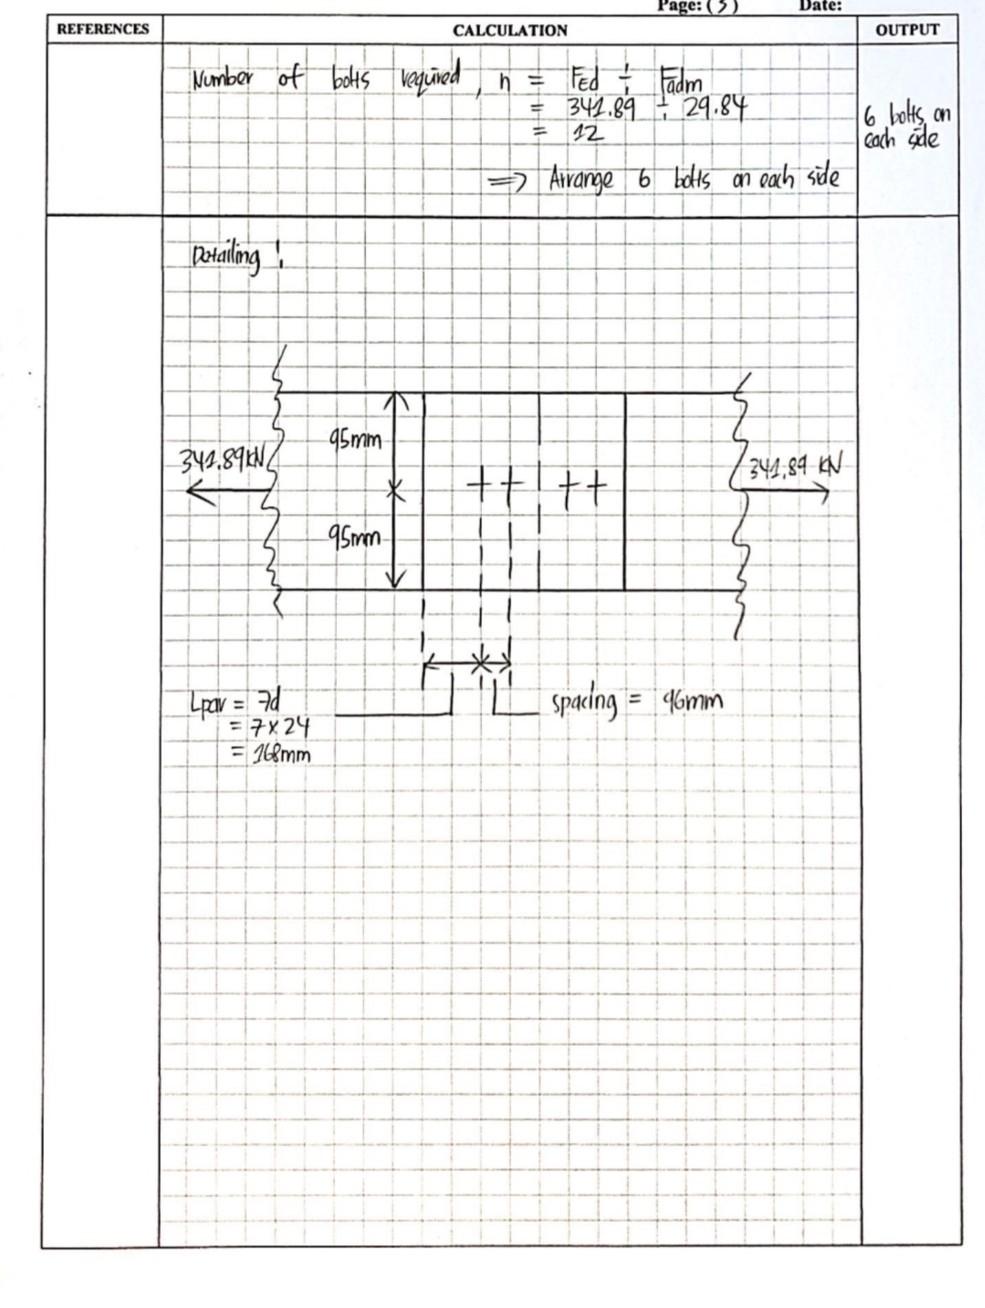 Page: (5) Date:
REFERENCES CALCULATION OUTPUT
Number of bolts required, n = FEd ÷ Fadm
= 341.89 ÷ 29.84
= 12
6 bolts on
each side
⟹ Arrange 6 bolts on each side
Detailing :
95mm
341.89kN
341.89 KN
95mm
Lpar = 7d
= 7x24
= 168mm
spacing = 96mm